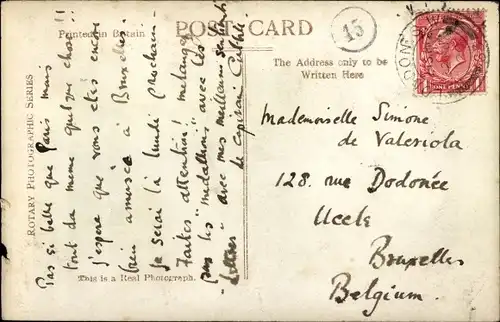 Printed in Britain
POST CARD
45
The Address only to be
Written Here
ROTARY PHOTOGRAPHIC SERIES
Pas si belle que Paris mais
tout de même quelque chose!!
J'espère que vous êtes encore
bien amusée à Bruxelles.
Je serai là lundi prochain
Faites attention! mélanger
pas les "medallions" avec les
lettres avec mes meilleurs
de capitaine
This is a Real Photograph.
Mademoiselle Simone
de Valeriola
128. rue Dodonée
Uccle
Bruxelles
Belgium.
ONE PENNY